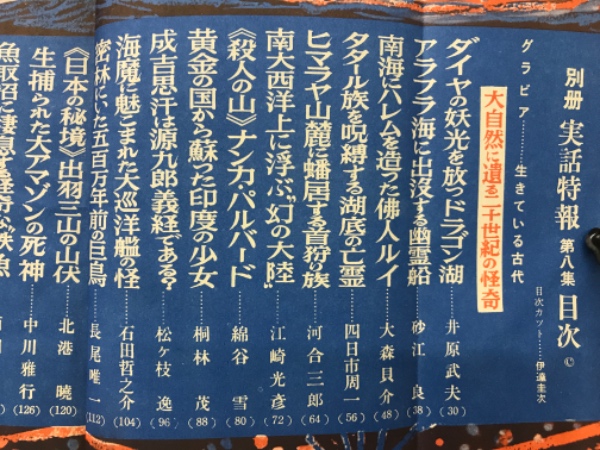 別册 実話特報 第八集 目次
目次カット……伊達圭次
グラビア…………生きている古代
大自然に遺る二十世紀の怪奇
ダイヤの妖光を放つドラゴン湖……井原武夫(30)
アラフラ海に出没する幽霊船……砂江 良(38)
南海にハレムを造った佛人ルイ……大森貝介(48)
タタール族を呪縛する湖底の亡霊……四日市周一(56)
ヒマラヤ山麓に蟠居する首狩り族……河合三郎(64)
南大西洋上に浮ぶ“幻の大陸”……江崎光彦(72)
《殺人の山》ナンカ・パルバード……綿谷 雪(80)
黄金の国から蘇った印度の少女……桐林 茂(88)
成吉思汗は源九郎義経である?……松ケ枝 逸(96)
海魔に魅こまれた大巡洋艦の怪……石田哲之介(104)
密林にいた五百万年前の巨鳥……長尾唯一(112)
《日本の秘境》出羽三山の山伏……北港 曉(120)
生捕られた大アマゾンの死神……中川雅行(126)